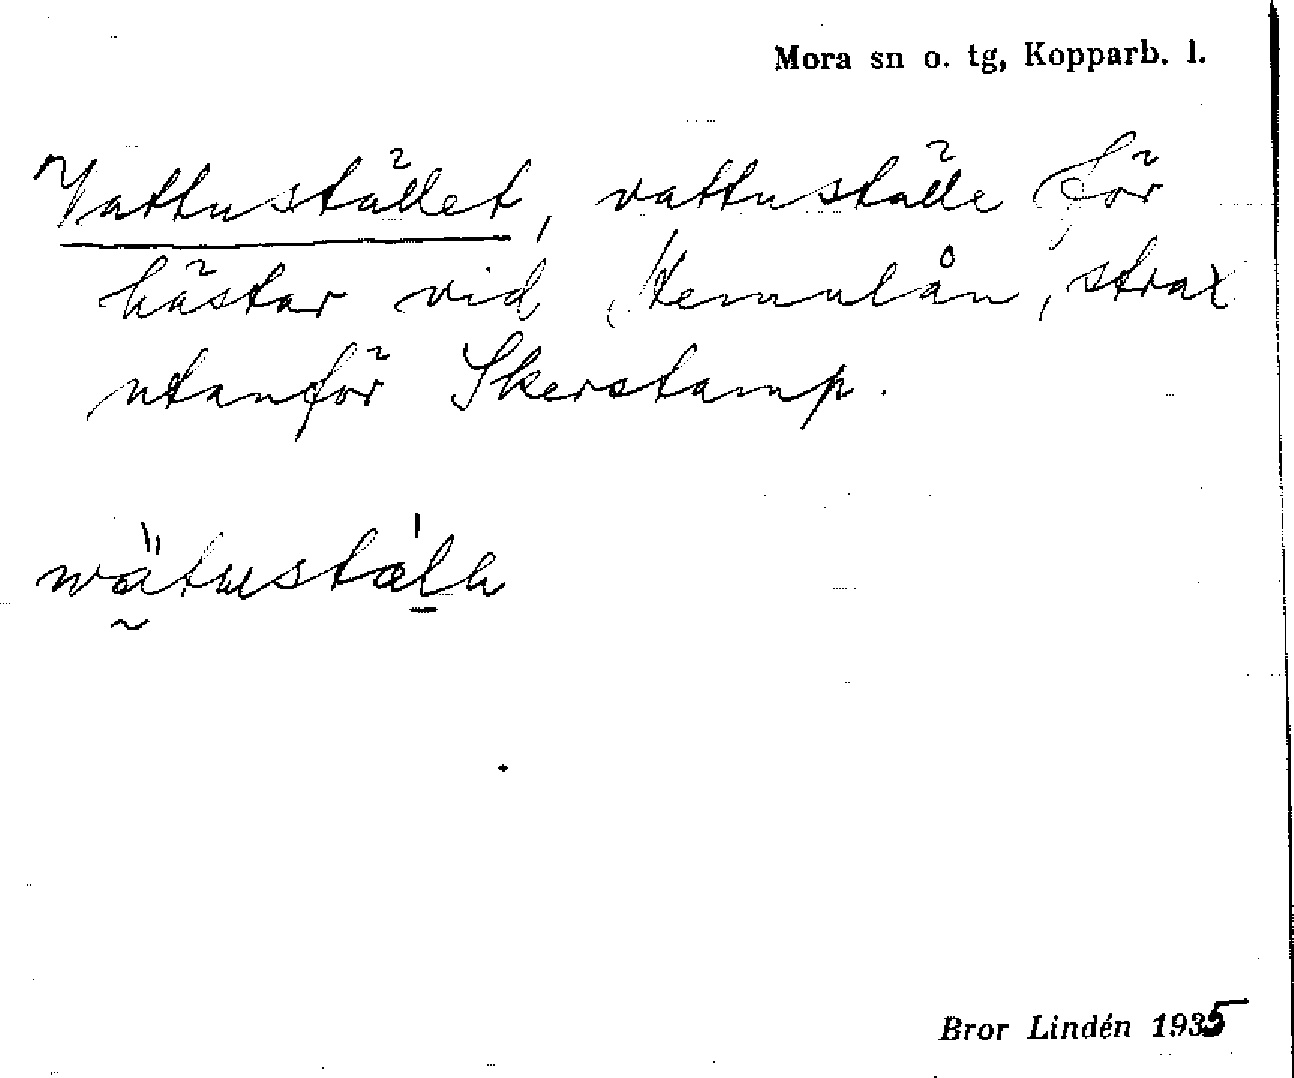 Mora sn o. tg, Kopparb. l.
Vattustället, vattuställe för
hästar vid Hemulån, strax
utanför Skerstamp.
Bror Lindén 1935